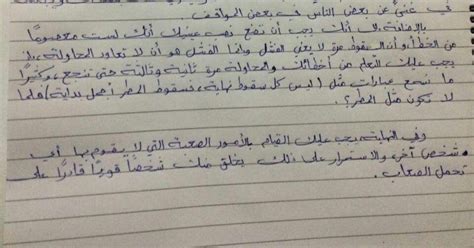 في غنىً عن بعض الناس في بعض المواقف.
بالإضافة إلى أنك يجب أن تضع نصب عينيك أنك لست معصومًا
من الخطأ، وأن السقوط مرة لا يعني الفشل وإنما الفشل هو أن لا تعاود المحاولة، بل
يجب عليك التعلم من أخطائك والمحاولة مرة ثانية وثالثة حتى تنجح، وكثيرًا
ما نسمع عبارات مثل (ليس كل سقوط نهاية، فسقوط المطر أجمل بداية) فلما
لا نكون مثل المطر؟.
وفي النهاية يجب عليك القيام بالأمور الصعبة التي لا يقوم بها أي
شخص آخر، والاستمرار على ذلك يخلق منك شخصًا قويًا قادرًا على
تحمل الصعاب.